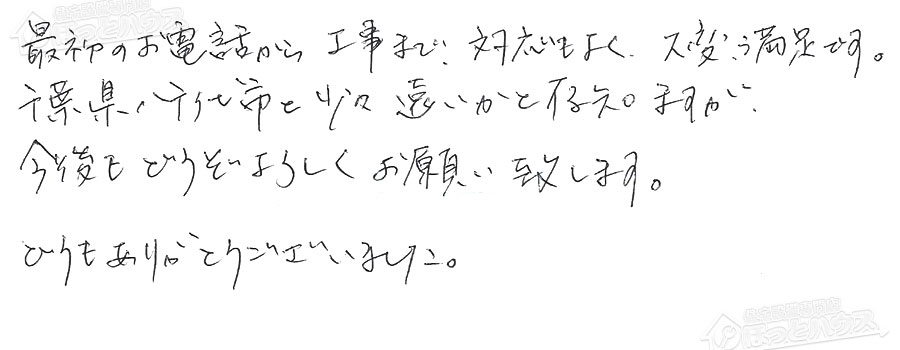 最初のお電話から工事まで、対応もよく、大変満足です。
千葉県八千代市と少々遠いかと存知ますが、
今後もどうぞよろしくお願い致します。
どうもありがとうございました。
ほっとハウス
ほっとハウス